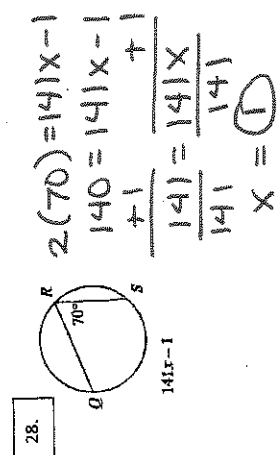 28.
R
70°
Q
S
141x − 1
2(70) = 141x − 1
140 = 141x − 1
+1 + 1
141 = 141x
141 141
x = 1